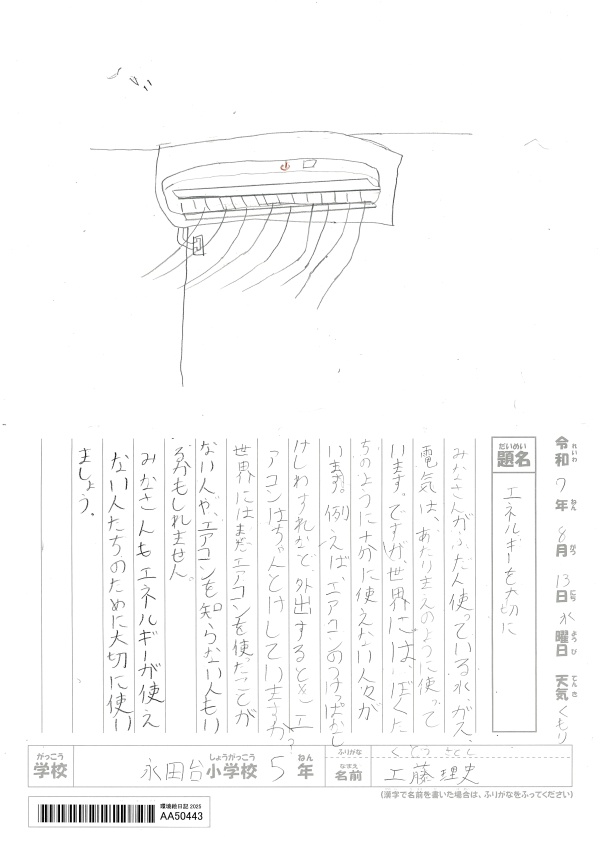 令和7年8月13日水曜日 天気くもり
れいわ ねん がつ にち ようび てんき
だいめい
題名
エネルギーを大切に
みなさんがふだん使っている水、ガス、
電気は、あたりまえのように使って
います。ですが、世界には、ぼくた
ちのように十分に使えない人々が
います。例えば、エアコンのつけっぱなし
けしわすれなどで、外出するとき、エ
アコンはちゃんとけしていますか?
世界にはまだエアコンを使ったことが
ない人や、エアコンを知らない人もい
るかもしれません。
みなさんもエネルギーが使え
ない人たちのために大切に使い
ましょう。
がっこう しょうがっこう ねん
学校 永田台小学校 5年
ふりがな くどう さとし
なまえ
名前 工藤理史
(漢字で名前を書いた場合は、ふりがなをふってください)
環境絵日記 2025
AA50443